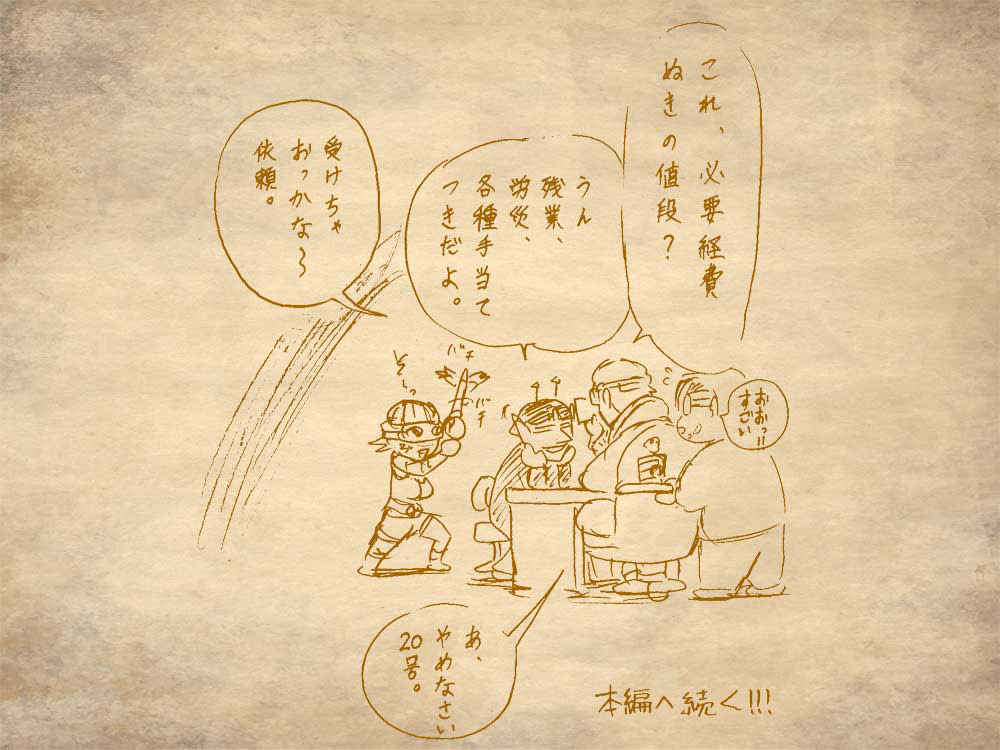 これ、必要経費
ぬきの値段？
うん
残業、
労災、
各種手当て
つきだよ。
受けちゃ
おっかな～
依頼。
おおっ!!
すごい
そ～っ
バチ
バチ
あ、
やめなさい
20号。
本編へ続く!!!